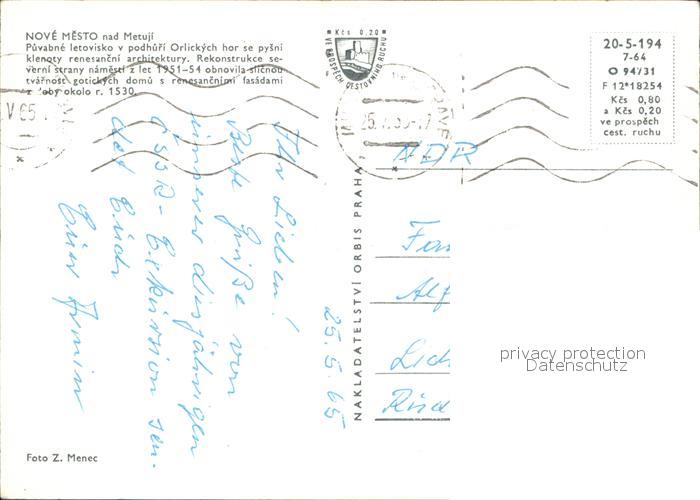 NOVÉ MĚSTO nad Metují
Půvabné letovisko v podhůří Orlických hor se pyšní
klenoty renesanční architektury. Rekonstrukce se-
verní strany náměstí z let 1951–54 obnovila sličnou
tvářnost gotických domů s renesančními fasádami
z doby okolo r. 1530.
Kčs 0,20
VE PROSPĚCH CESTOVNÍHO RUCHU
20-5-194
7-64
O 94/31
F 12*18254
Kčs 0,80
a Kčs 0,20
ve prospěch
cest. ruchu
Ihr Lieben!
Beste Grüße von
unserer diesjährigen
ČSSR-Exkursion sen-
det Euch
Euer Armin
25.5.65
NAKLADATELSTVÍ ORBIS PRAHA
DDR
Fam
Alf
Lich
Rud
privacy protection
Datenschutz
Foto Z. Menec